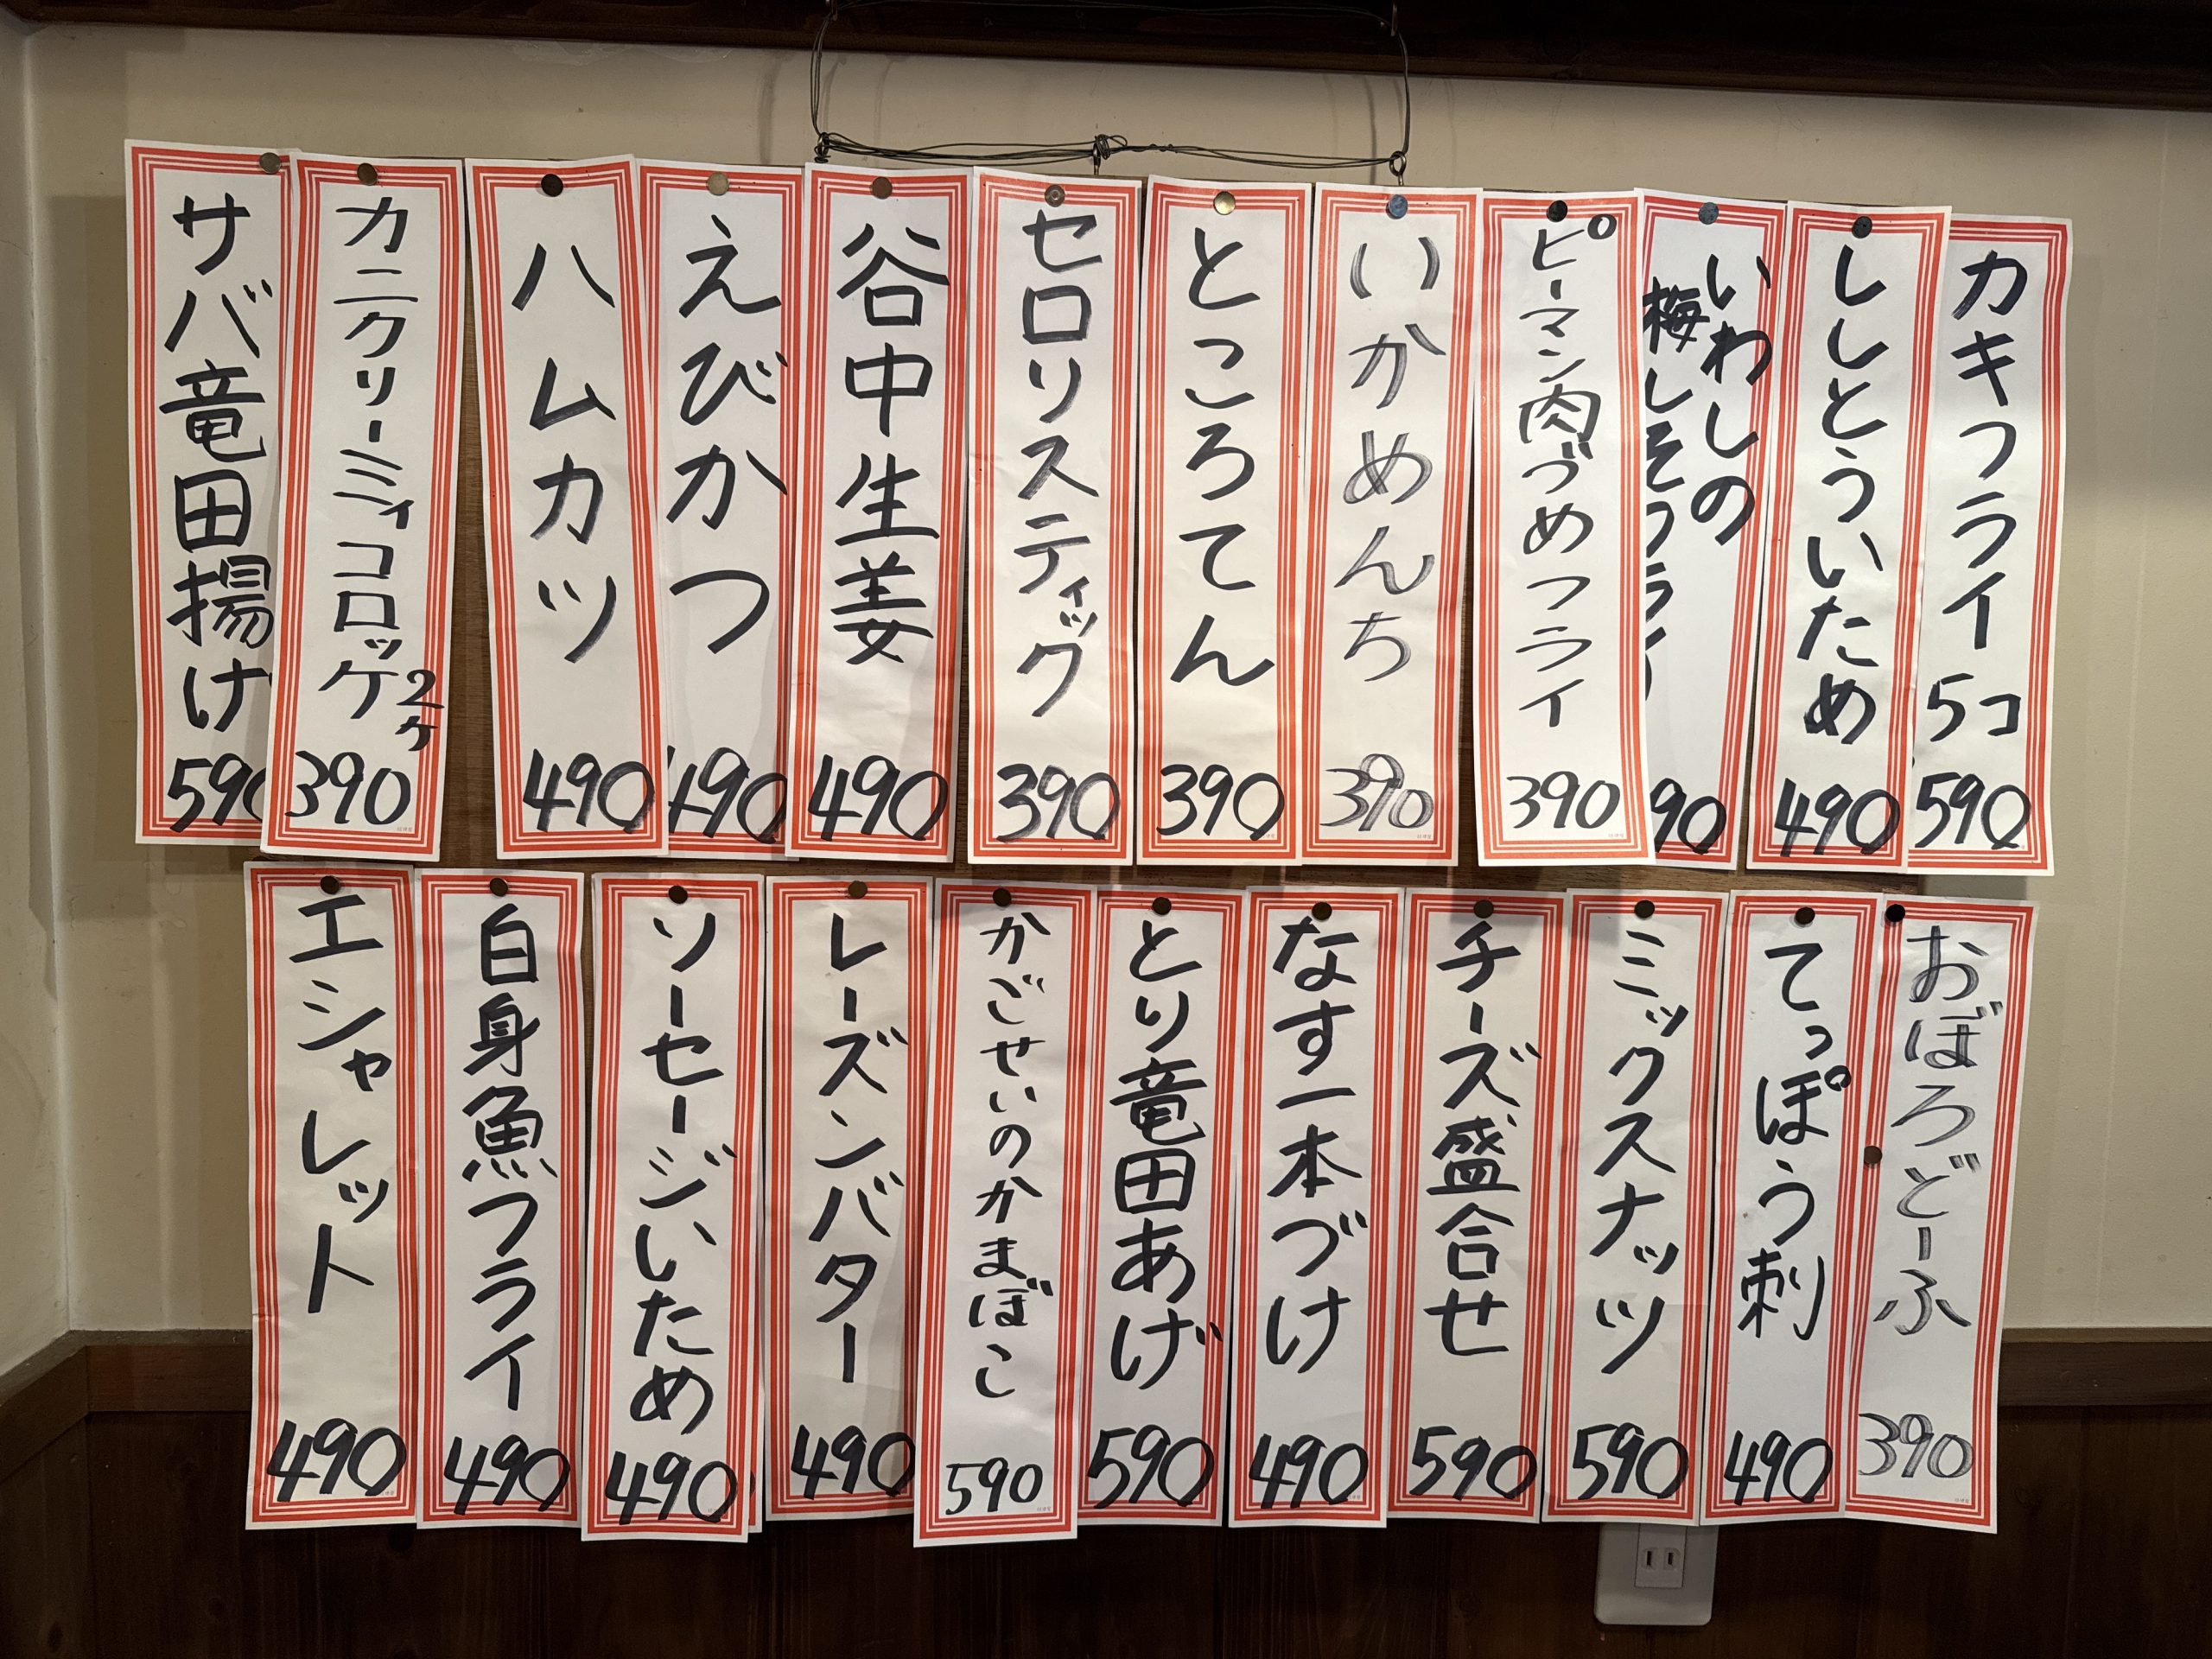 カキフライ 5コ 590
ししとういため 490
いわしの
梅しそフライ
90
ピーマン肉づめフライ 390
いかめんち 390
ところてん 390
セロリスティック 390
谷中生姜 490
えびかつ 490
ハムカツ 490
カニクリーミィコロッケ 2ヶ 390
サバ竜田揚げ 590
おぼろどーふ 390
てっぽう刺 490
ミックスナッツ 590
チーズ盛合せ 590
なす一本づけ 490
とり竜田あげ 590
かごせいのかまぼこ 590
レーズンバター 490
ソーセージいため 490
白身魚フライ 490
エシャレット 490